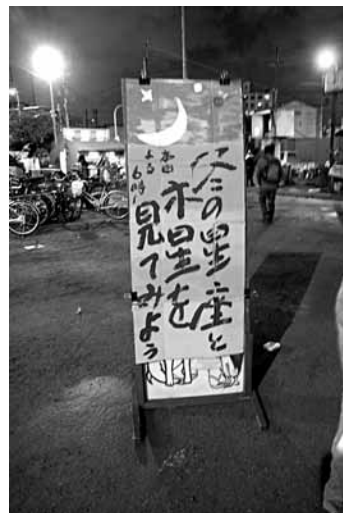 冬の星座と
木星を
見てみよう
本日
よる
6時に